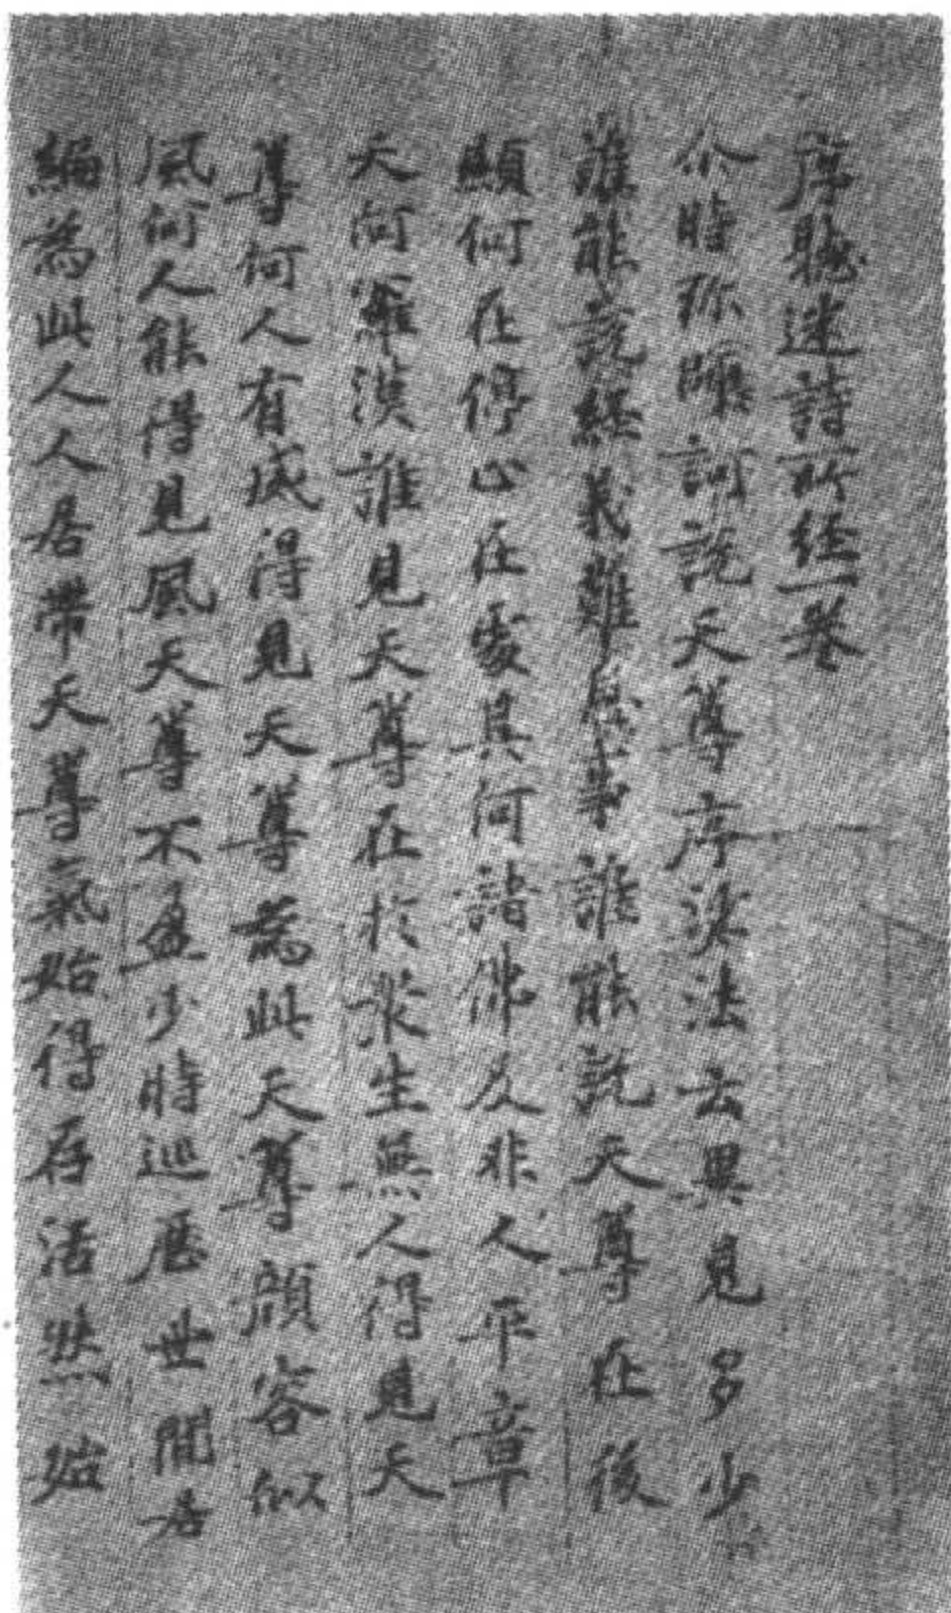 序聽迷詩所經一卷
尒時弥師訶說天尊序娑法云異見多少
誰能說經義難息事誰能說天尊在後
顯何在停止在處其何諸佛及非人平章
天阿羅漢誰見天尊在於衆生無人得見天
尊何人有威得見天尊為此天尊顏容似
風何人能得見風天尊不盈少時巡歷世間居
編為此人人居帶天尊氣始得存活然始